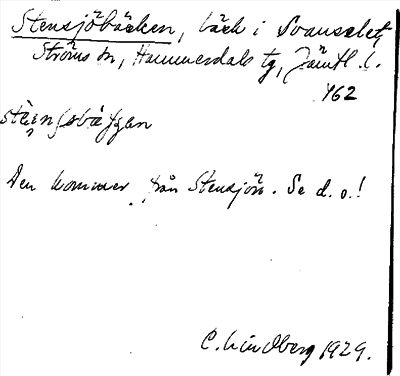 Stensjöbäcken, bäck i Svanselet,
Ströms sn, Hammerdals tg, Jämtl. l.
462
Den kommer från Stensjön. Se d. o.!
C. Lindberg 1929.